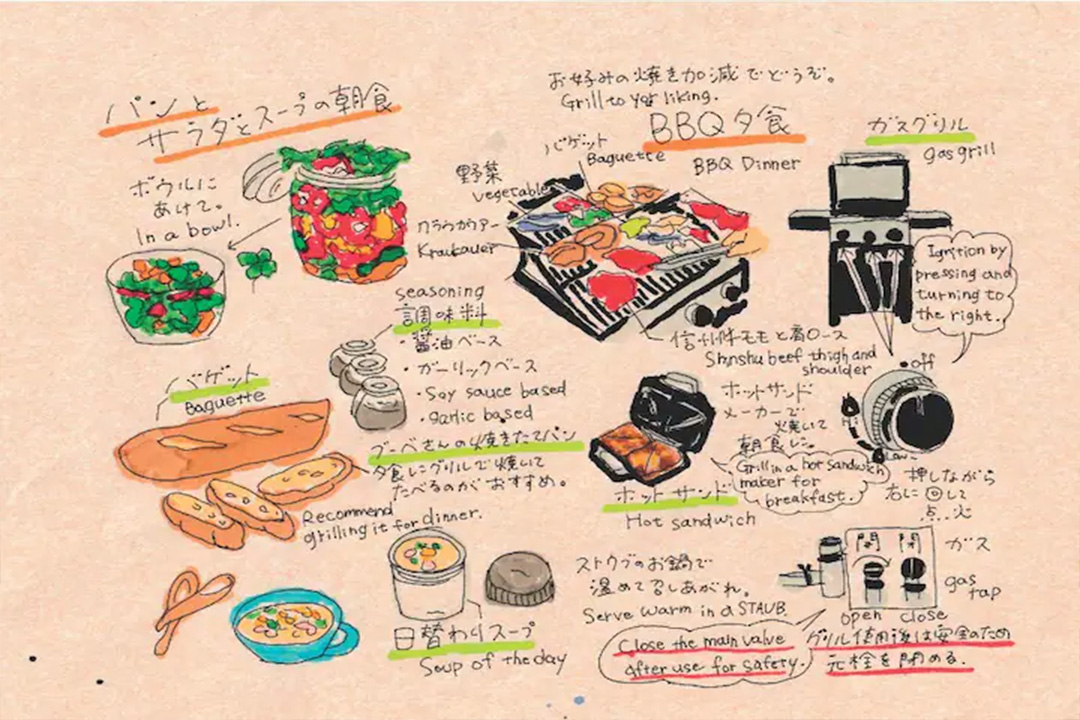 パンと
サラダとスープの朝食
ボウルに
あけて。
In a bowl.
お好みの焼き加減でどうぞ。
Grill to your liking.
BBQ夕食
BBQ Dinner
バゲット
Baguette
野菜
vegetable
クラカウアー
Krakauer
信州牛モモと肩ロース
Shinshu beef thigh and
shoulder
ガスグリル
gas grill
Ignition by
pressing and
turning to
the right.
off
Hi
Low
押しながら
右に回して
点火
seasoning
調味料
・醤油ベース
・ガーリックベース
・Soy sauce based
・garlic based
バゲット
Baguette
グーベさんの焼きたてパン
夕食にグリルで焼いて
たべるのがおすすめ。
Recommend
grilling it for dinner.
ホットサンド
メーカーで
焼いて
朝食に。
Grill in a hot sandwich
maker for
breakfast.
ホットサンド
Hot sandwich
ストウブのお鍋で
温めて召しあがれ。
Serve warm in a STAUB.
日替わりスープ
Soup of the day
ガス
gas
tap
open close
Close the main valve
after use for safety.
グリル使用後は安全のため
元栓を閉める.